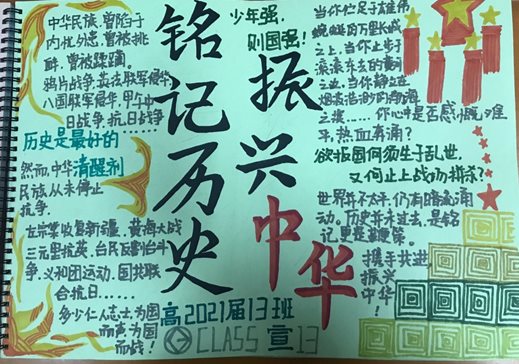 铭记历史
振兴中华
少年强，
则国强！
中华民族，曾陷于
内忧外患，曾被挑
衅，曾被蹂躏。
鸦片战争，英法联军侵华
八国联军侵华，甲午中
日战争，抗日战争……
历史是最好的
清醒剂
然而，中华
民族，从未停止
抗争。
左宗棠收复新疆，黄海大战
三元里抗英，台民反割台斗
争，义和团运动，国共联
合抗日……
多少仁人志士，为国
而兴，为国
而战！
当你伫足于雄伟
蜿蜒的万里长城
之上，当你止步于
滚滚东去的黄河
之边，当你静立在
烟波浩渺的南海
之滨……你心中是否感慨难
平，热血奔涌？
欲报国何须生于乱世，
又何止上战场拼杀？
世界并不太平，仍有暗流涌
动。历史并未过去，是铭
记更是鞭策。
携手共进
振兴
中华！
高2021届13班
CLASS 宣 13